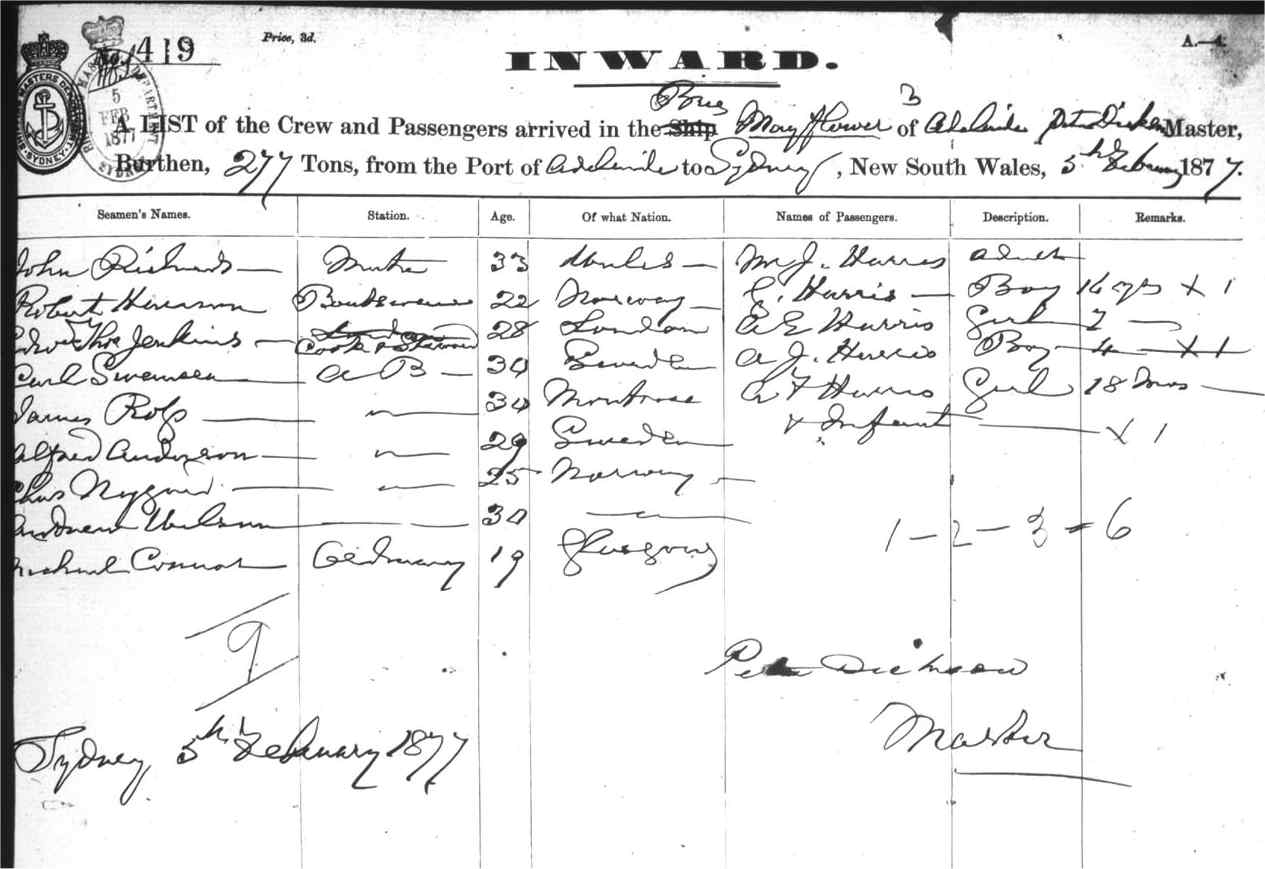 Price, 3d.
A—4.
No. 419
SHIPPING MASTERS DEPARTMENT SYDNEY
5 FEB 1877
INWARD.
Brig 3
A LIST of the Crew and Passengers arrived in the Ship Mayflower of Adelaide Peter Dickson Master,
Burthen, 277 Tons, from the Port of Adelaide to Sydney, New South Wales, 5th February 1877.
Seamen's Names. Station. Age. Of what Nation. Names of Passengers. Description. Remarks.
John Richards — Mate 33 Wales — Mrs J. Harris adult
Robert 22 Norway — Harris — Boy 14 yrs X 1
Jenkins — Cook & Steward 28 London E Harris Girl 7 —
Carl Swensen — A B — 30 Sweden A J. Harris Boy 4 — X 1
James — 〃 30 Montrose A F Harris Girl 18 Mos —
Alfred Anderson — 〃 29 Sweden & Infant — X 1
Chas Nygard — 〃 25 Norway —
Andrew — 〃 30 〃
Michael Connor Ordinary 19 Glasgow
1 – 2 – 3 = 6
9
Peter Dickson
Master
Sydney, 5th February 1877